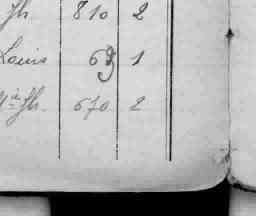 Jh 810 2
Louis 63 1
Jh. 670 2